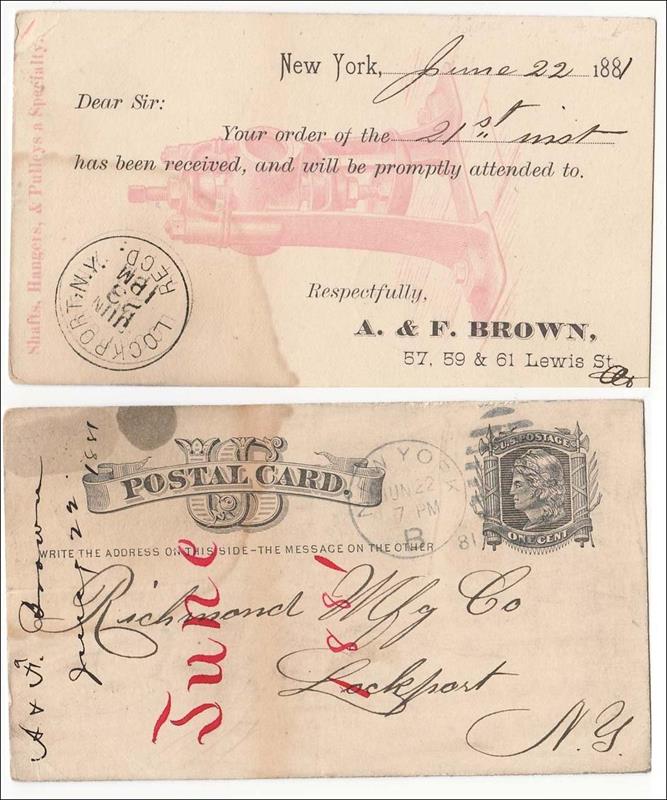 New York, June 22 1881
Dear Sir:
Your order of the 21st inst
has been received, and will be promptly attended to.
Respectfully,
A. & F. BROWN,
57, 59 & 61 Lewis St.
Shafts, Hangers, & Pulleys a Specialty.
LOCKPORT, N.Y.
JUN
23
1 PM
REC'D.
US
POSTAL CARD.
WRITE THE ADDRESS ON THIS SIDE - THE MESSAGE ON THE OTHER
NEW YORK
JUN 22
7 PM
B
81
U.S. POSTAGE
ONE CENT
Richmond Mfg Co
Lockport
N.Y.
June
188'
A & F. Brown
June 22 1881